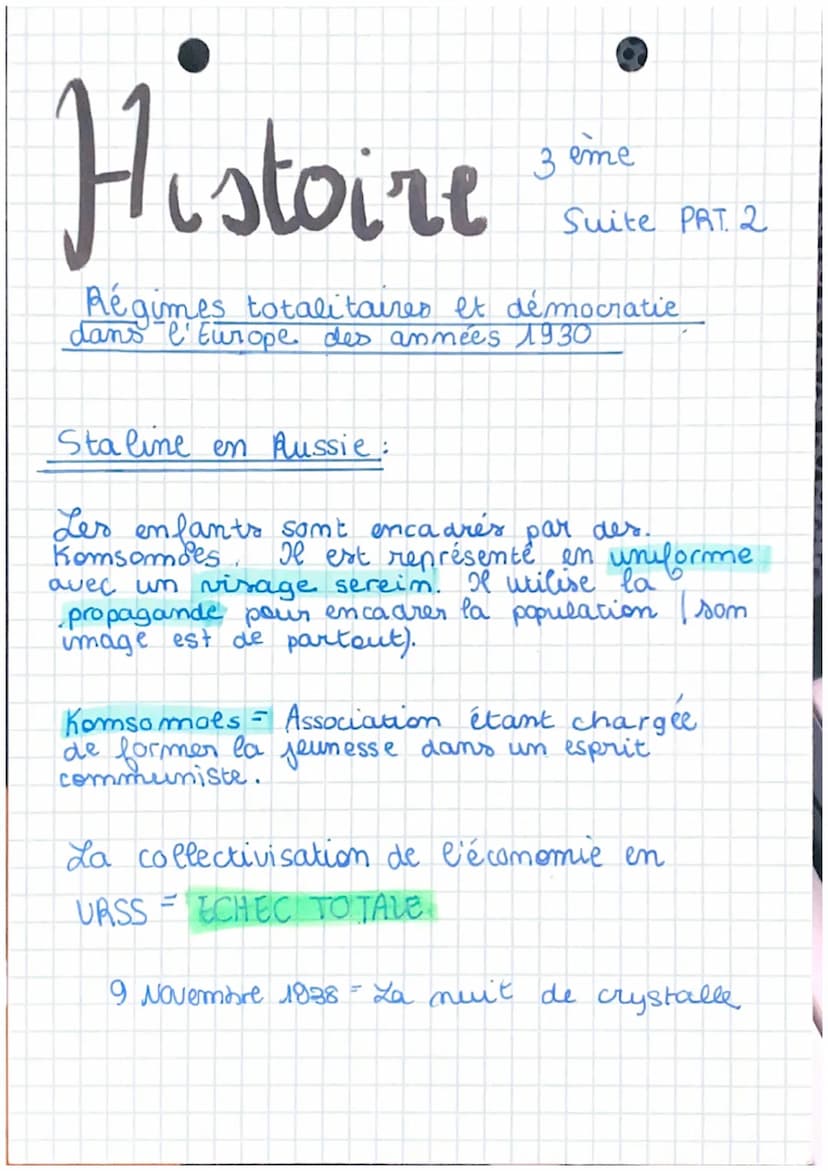 Histoire
3 ème
Suite PRT. 2
Régimes totalitaires et démocratie
dans l'Europe des années 1930
Staline en Russie :
Les enfants sont encadrés par des
Komsomoles. Il est représenté en uniforme
avec un visage serein. Il utilise la
propagande pour encadrer la population (son
image est de partout).
Komsomols = Association étant chargée
de former la jeunesse dans un esprit
communiste.
La collectivisation de l'économie en
URSS = ECHEC TOTALE
9 Novembre 1938 = La nuit de crystalle